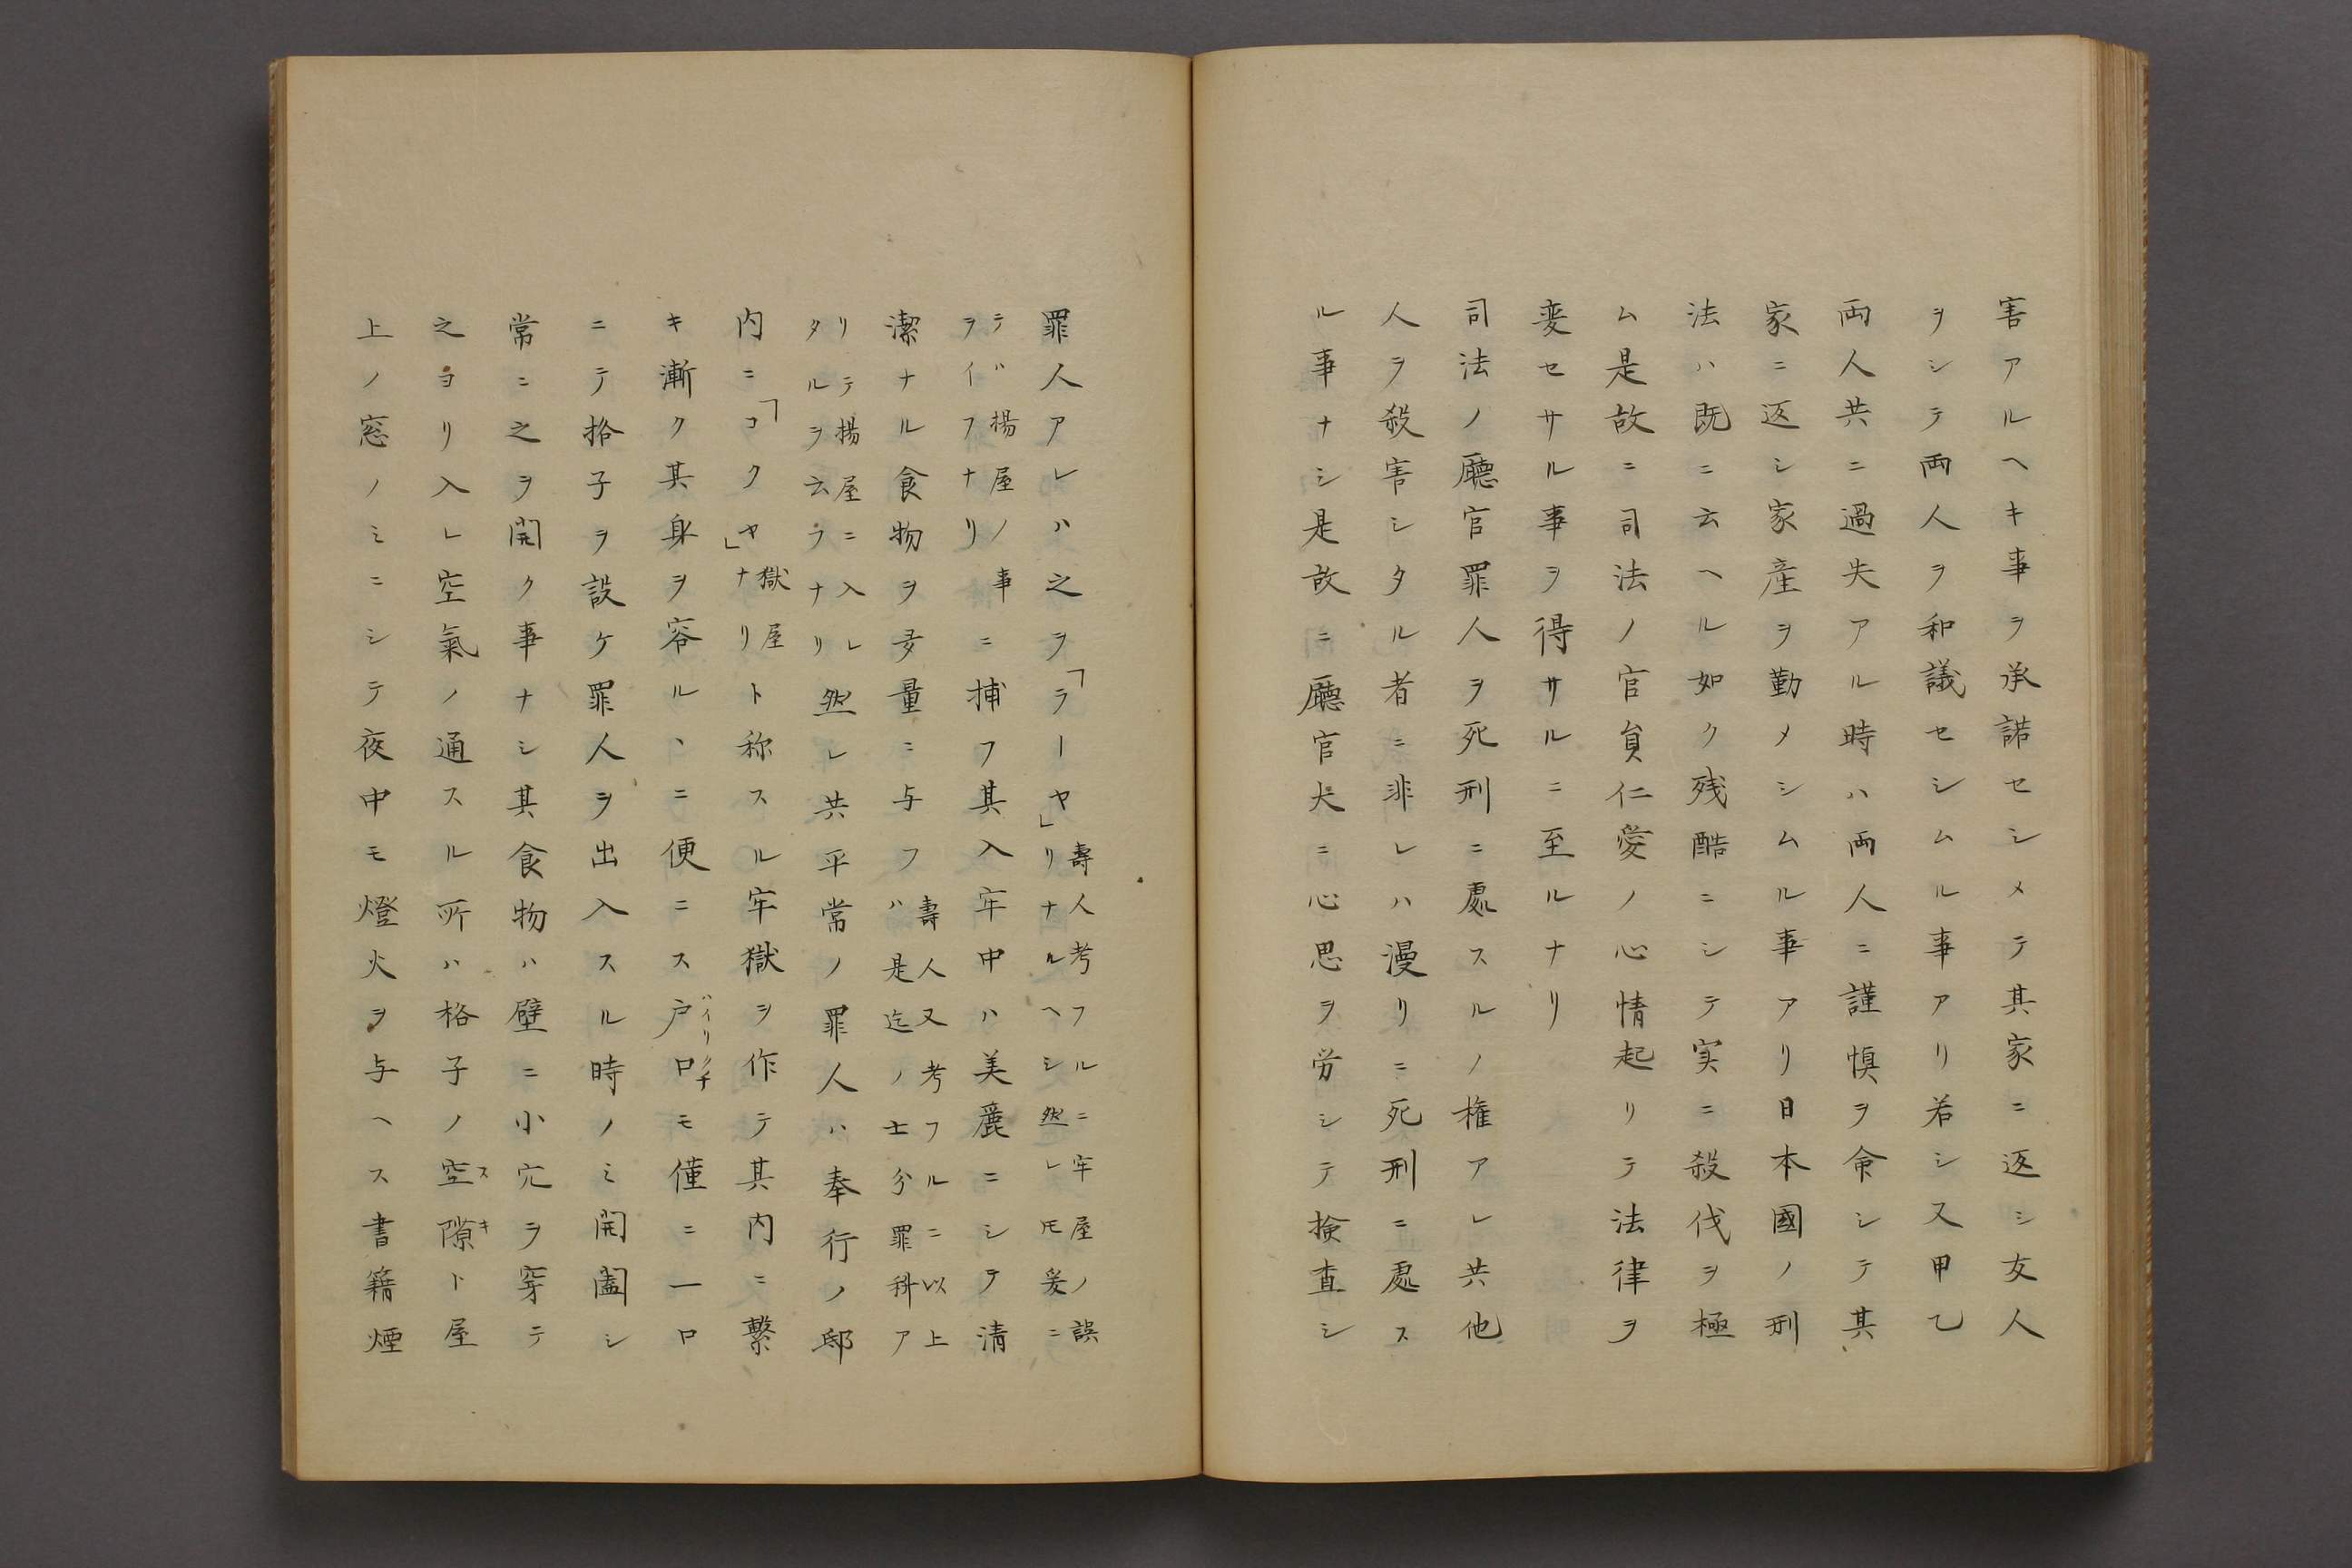 害アルヘキ事ヲ承諾セシメテ其家ニ返シ友人
ヲシテ両人ヲ和議セシムル事アリ若シ又甲乙
両人共ニ過失アル時ハ両人ニ謹慎ヲ命シテ其
家ニ返シ家産ヲ勤メシムル事アリ日本國ノ刑
法ハ既ニ云ヘル如ク残酷ニシテ実ニ殺伐ヲ極
ム是故ニ司法ノ官員仁愛ノ心情起リテ法律ヲ
変セサル事ヲ得サルニ至ルナリ
司法ノ廳官罪人ヲ死刑ニ處スルノ権アレ共他
人ヲ殺害シタル者ニ非レハ漫リニ死刑ニ處ス
ル事ナシ是故ニ廳官大ニ心思ヲ労シテ捡査シ
罪人アレハ之ヲ「ラーヤ」
壽人考フルニ牢屋ノ誤
リナルヘシ然レ𪜈爰ニ
テバ揚屋ノ事
ヲイフナリ
ニ捕フ其入牢中ハ美麗ニシテ清
潔ナル食物ヲ多量ニ与フ
壽人又考フルニ以上
ハ是迄ノ士分罪科ア
リテ揚屋ニ入レ
タルヲ云ラナリ
然レ共平常ノ罪人ハ奉行ノ邸
内ニ「コクヤ」
獄屋
ナリ
ト称スル牢獄ヲ作テ其内ニ繋
キ漸ク其身ヲ容ルヽニ便ニス戸口ハイリクチモ僅ニ一口
ニテ拾子ヲ設ケ罪人ヲ出入スル時ノミ開闔シ
常ニ之ヲ開ク事ナシ其食物ハ壁ニ小穴ヲ穿テ
之ヨリ入レ空氣ノ通スル所ハ格子ノ空隙スキト屋
上ノ窓ノミニシテ夜中モ燈火ヲ与ヘス書籍煙